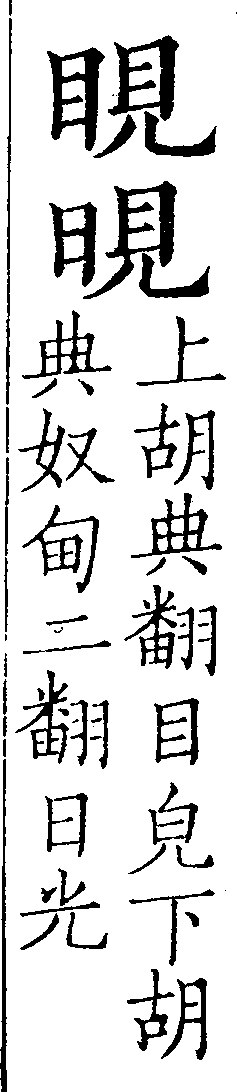 睍晛
上胡典翻目皃下胡
典奴甸二翻日光